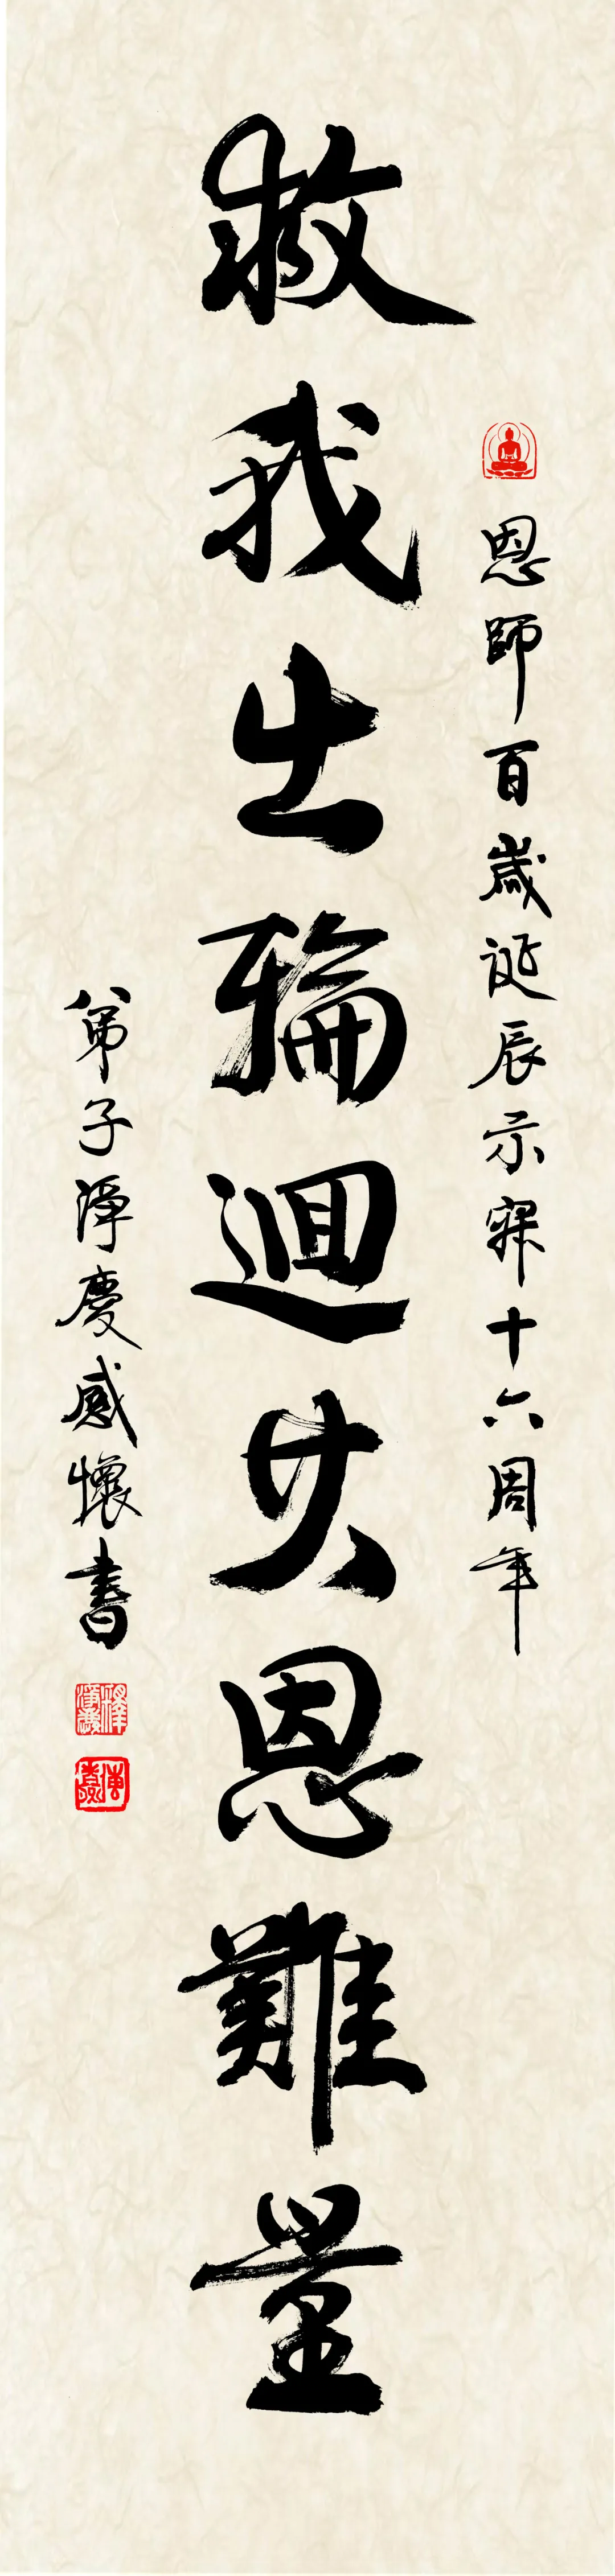 恩師百歲誕辰示寂十六周年
救我出輪迴大恩難量
弟子淨慶感懷書